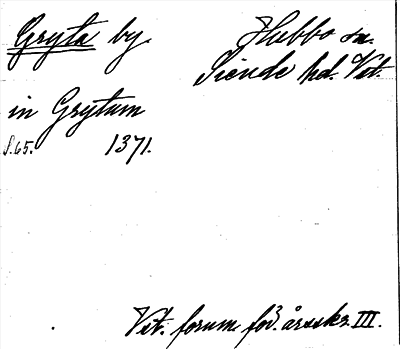 Gryta by.
Hubbo sn.
Siende hd. Vst.
in Grytum
S. 65. 1371.
Vst. fornm. för. årsskr. III.